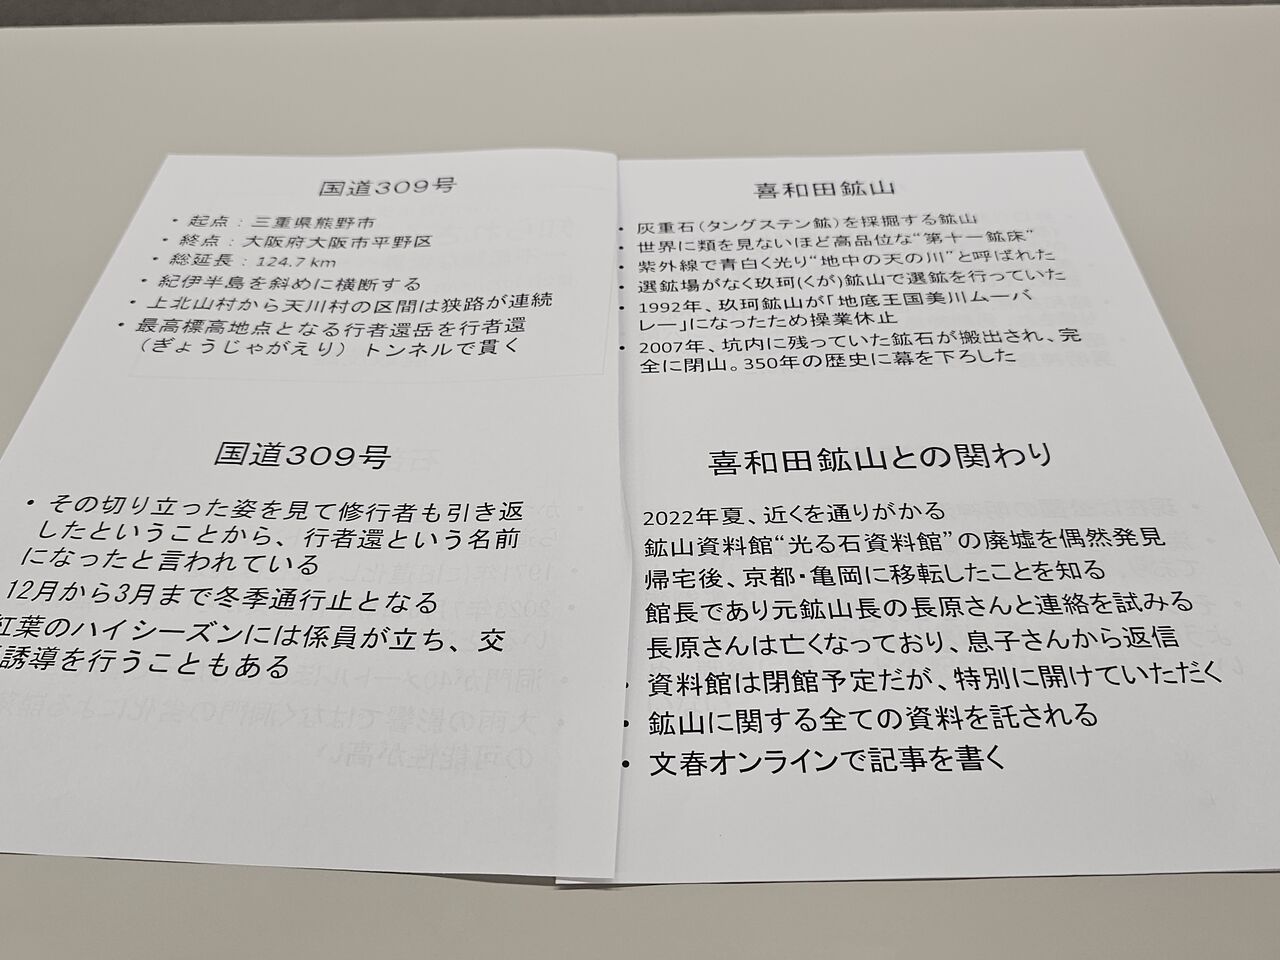 国道309号
• 起点：三重県熊野市
• 終点：大阪府大阪市平野区
• 総延長：124.7 km
• 紀伊半島を斜めに横断する
• 上北山村から天川村の区間は狭路が連続
• 最高標高地点となる行者還岳を行者還
（ぎょうじゃがえり）トンネルで貫く
国道309号
• その切り立った姿を見て修行者も引き返
したということから、行者還という名前
になったと言われている
12月から3月まで冬季通行止となる
紅葉のハイシーズンには係員が立ち、交
誘導を行うこともある
喜和田鉱山
• 灰重石（タングステン鉱）を採掘する鉱山
• 世界に類を見ないほど高品位な“第十一鉱床”
• 紫外線で青白く光り“地中の天の川”と呼ばれた
• 選鉱場がなく玖珂(くが)鉱山で選鉱を行っていた
• 1992年、玖珂鉱山が「地底王国美川ムーバ
レー」になったため操業休止
• 2007年、坑内に残っていた鉱石が搬出され、完
全に閉山。350年の歴史に幕を下ろした
喜和田鉱山との関わり
2022年夏、近くを通りがかる
鉱山資料館“光る石資料館”の廃墟を偶然発見
帰宅後、京都・亀岡に移転したことを知る
館長であり元鉱山長の長原さんと連絡を試みる
長原さんは亡くなっており、息子さんから返信
• 資料館は閉館予定だが、特別に開けていただく
• 鉱山に関する全ての資料を託される
• 文春オンラインで記事を書く